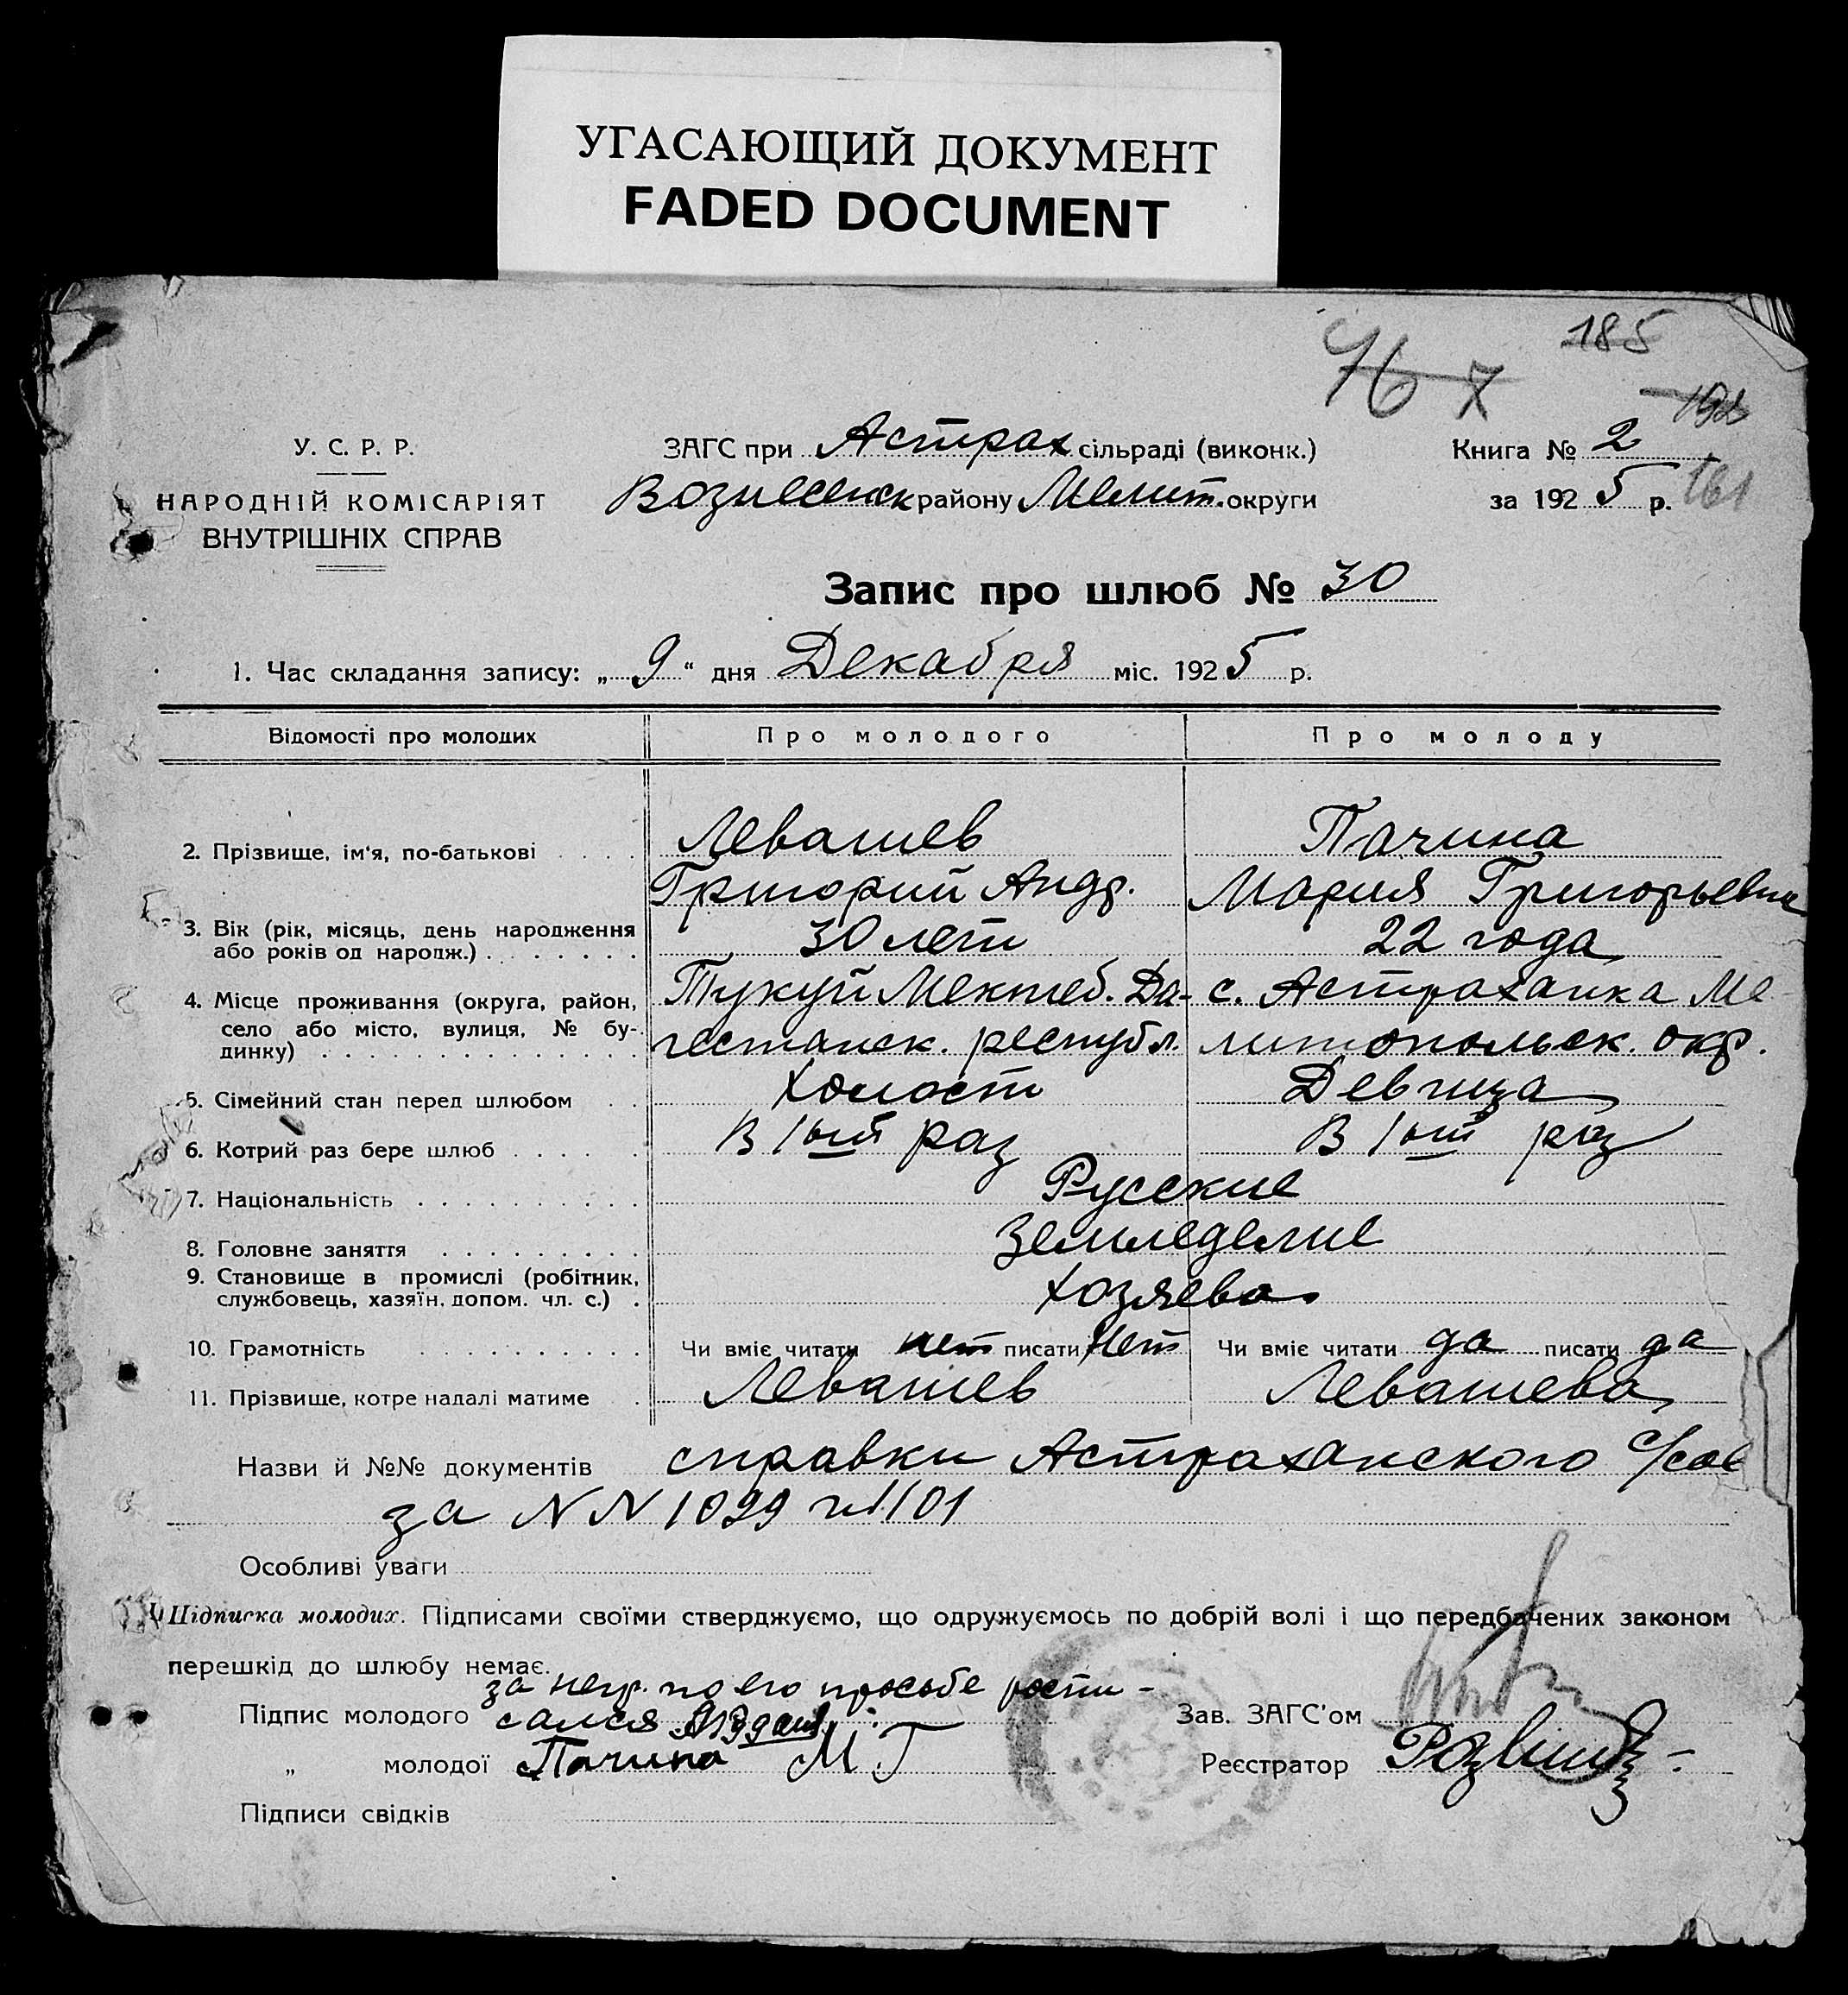 УГАСАЮЩИЙ ДОКУМЕНТ
FADED DOCUMENT
185
46 7
У. С. Р. Р.
НАРОДНІЙ КОМІСАРІЯТ
ВНУТРІШНІХ СПРАВ
ЗАГС при Астрах сільраді (виконк.)
Вознесенск району Мелит. округи
Книга № 2
за 1925 р. 161
Запис про шлюб № 30
1. Час складання запису: „ 9 “ дня Декабря міс. 1925 р.
Відомості про молодих Про молодого Про молоду
2. Прізвище, ім'я, по-батькові . . . . Левашев Пачина
Григорий Андр. Мария Григорьевна
3. Вік (рік, місяць, день народження
або років од народж.) . . . . . . . 30 лет 22 года
4. Місце проживання (округа, район, Тукуй Мектеб. Да- с. Астраханка Ме
село або місто, вулиця, № бу-
динку) . . . . . . . . . . . . . гестанск. республ. литопольск. окр.
5. Сімейний стан перед шлюбом . . Холост Девица
6. Котрий раз бере шлюб . . . . . . В 1ый раз В 1ый раз
7. Національність . . . . . . . . . . Русские
8. Головне заняття . . . . . . . . . Земледелие
9. Становище в промислі (робітник,
службовець, хазяїн, допом. чл. с.) . Хозяева
10. Грамотність . . . . . . . . . . Чи вміє читати нет писати Нет Чи вміє читати да писати да
11. Прізвище, котре надалі матиме . Левашев Левашева
Назви й №№ документів справки Астраханского с/сов
за NN 1099 и 1101
Особливі уваги
Підписка молодих. Підписами своїми стверджуємо, що одружуємось по добрій волі і що передбачених законом
перешкід до шлюбу немає.
за негр. по его просьбе распи-
Підпис молодого сался
„ молодої Пачина М Г
Зав. ЗАГС'ом
Реєстратор
Підписи свідків